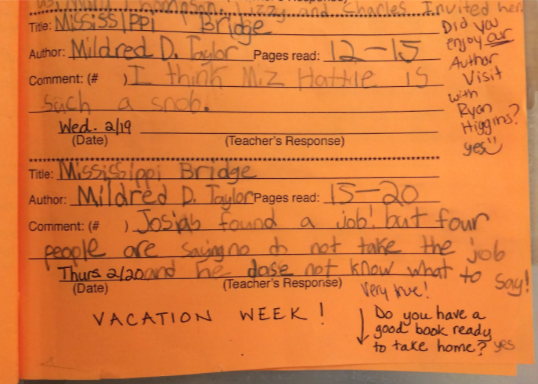 Thompson. Lizzy and Charles Invited her
Title: Mississippi Bridge
Author: Mildred D. Taylor Pages read: 12-15
Comment: (# ) I think Miz Hattie is
such a snob.
Wed. 2/19
(Date) (Teacher's Response)
Did you
enjoy our
Author
Visit
with
Ryan
Higgins?
yes
Title: Mississippi Bridge
Author: Mildred D. Taylor Pages read: 15-20
Comment: (# ) Josias found a job! but four
people are saying no do not take the job
Thurs 2/20 and he dose not know what to say!
(Date) (Teacher's Response) Very true!
VACATION WEEK!
Do you have a
good book ready
to take home? yes